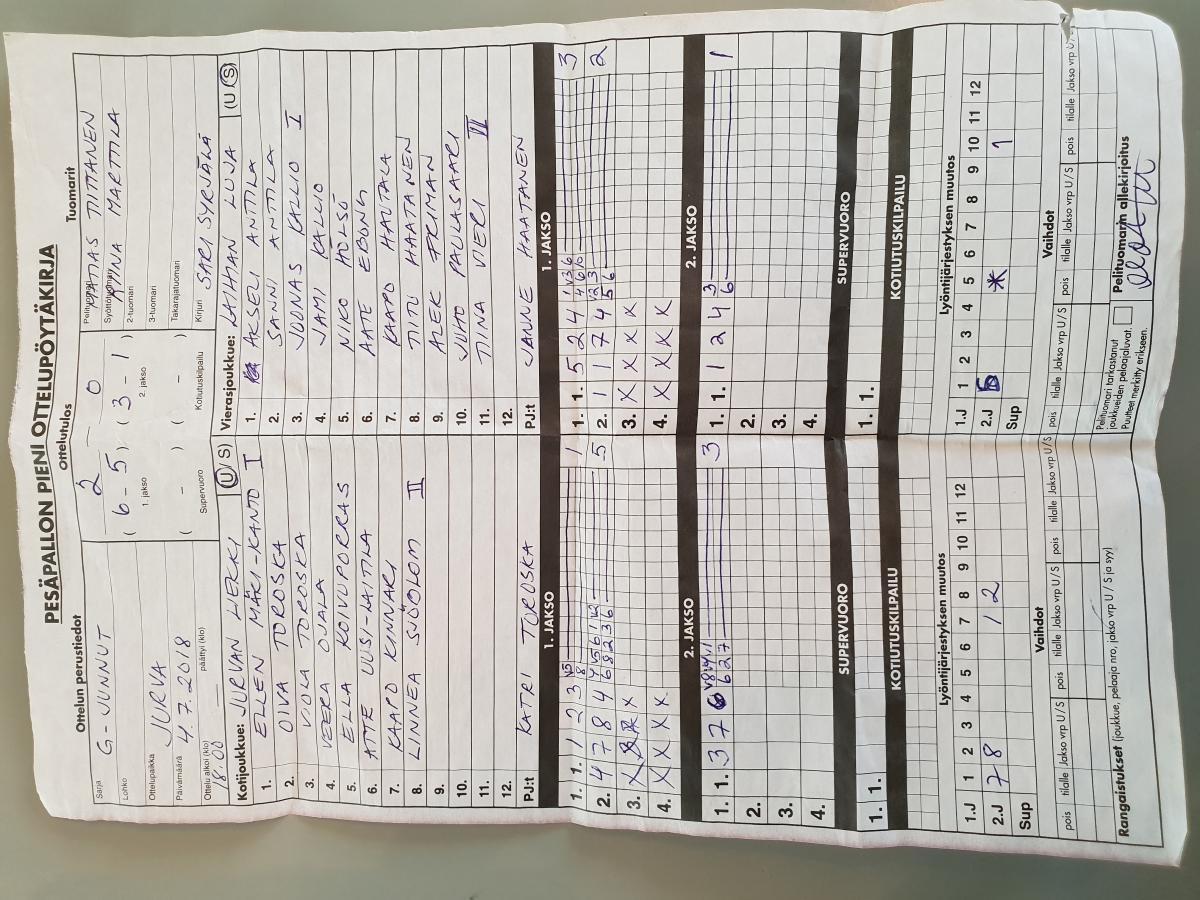 PESÄPALLON PIENI OTTELUPÖYTÄKIRJA
Ottelun perustiedot
Sarja G-JUNNUT
Lohko
Ottelupaikka JURVA
Päivämäärä 4.7.2018
Ottelu alkoi (klo) 18.00 päättyi (klo)
Ottelutulos
2 - 0
( 6 - 5 ), ( 3 - 1 )
1. jakso 2. jakso
( - ) ( - )
Supervuoro Kotiutuskilpailu
Tuomarit
Pelituomari TIITTANEN
Syöttötuomari MARTTILA
2-tuomari
3-tuomari
Takarajatuomari
Kirjuri SARI SYRJÄLÄ
Kotijoukkue: JURVAN LIEKKI (U/S)
1. ELLEN MÄKI-KANTO I
2. OIVA TOROSKA
3. VIOLA TOROSKA
4. VEERA OJALA
5. ELLA KOIVUPORRAS
6. ATTE UUSI-LAITILA
7. KAAPO KINNARI
8. LINNEA SJÖBLOM II
9.
10.
11.
12.
PJ:t KATRI TOROSKA
Vierasjoukkue: LAIHIAN LUJA (U/S)
1. AKSELI ANTTILA
2. SANNI ANTTILA
3. JOONAS KALLIO I
4. JAMI KALLIO
5. NIKO HÖLSÖ
6. AATE EBONG
7. KAAPO HAUTALA
8. TITU HAATANEN
9. ALEK FRIMAN
10. JUHO PAULASAARI
11. TIINA VIERI II
12.
PJ:t JANNE HAATANEN
1. JAKSO
1. 1. 1 2 3 1
2. 4 7 8 4 5
3. X X X
4. X X X X
1. JAKSO
1. 1. 5 2 4 3
2. 1 1 7 4 2
3. X X X X
4. X X X X
2. JAKSO
1. 1. 3 7 6 3
2.
3.
4.
2. JAKSO
1. 1. 1 2 4 1
2.
3.
4.
SUPERVUORO
1. 1.
SUPERVUORO
1. 1.
KOTIUTUSKILPAILU
KOTIUTUSKILPAILU
Lyöntijärjestyksen muutos
1.J 1 2 3 4 5 6 7 8 9 10 11 12
2.J 7 8 1 2
Sup
Lyöntijärjestyksen muutos
1.J 1 2 3 4 5 6 7 8 9 10 11 12
2.J 5 * 1
Sup
Vaihdot
pois tilalle Jakso vrp U/S pois tilalle Jakso vrp U/S pois tilalle Jakso vrp U/S
Vaihdot
pois tilalle Jakso vrp U/S pois tilalle Jakso vrp U/S pois tilalle Jakso vrp U/S
Rangaistukset (joukkue, pelaaja nro, jakso vrp U/S ja syy)
Pelituomari tarkastanut
joukkueiden pelaajaluvat.
Puutteet merkitty erikseen.
Pelituomarin allekirjoitus